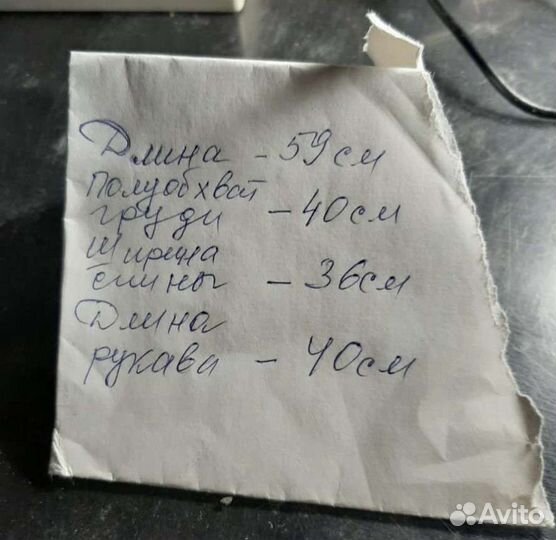 Длина - 59 см
Полуобхват
груди - 40 см
Ширина
спины - 36 см
Длина
рукава - 40 см
Avito